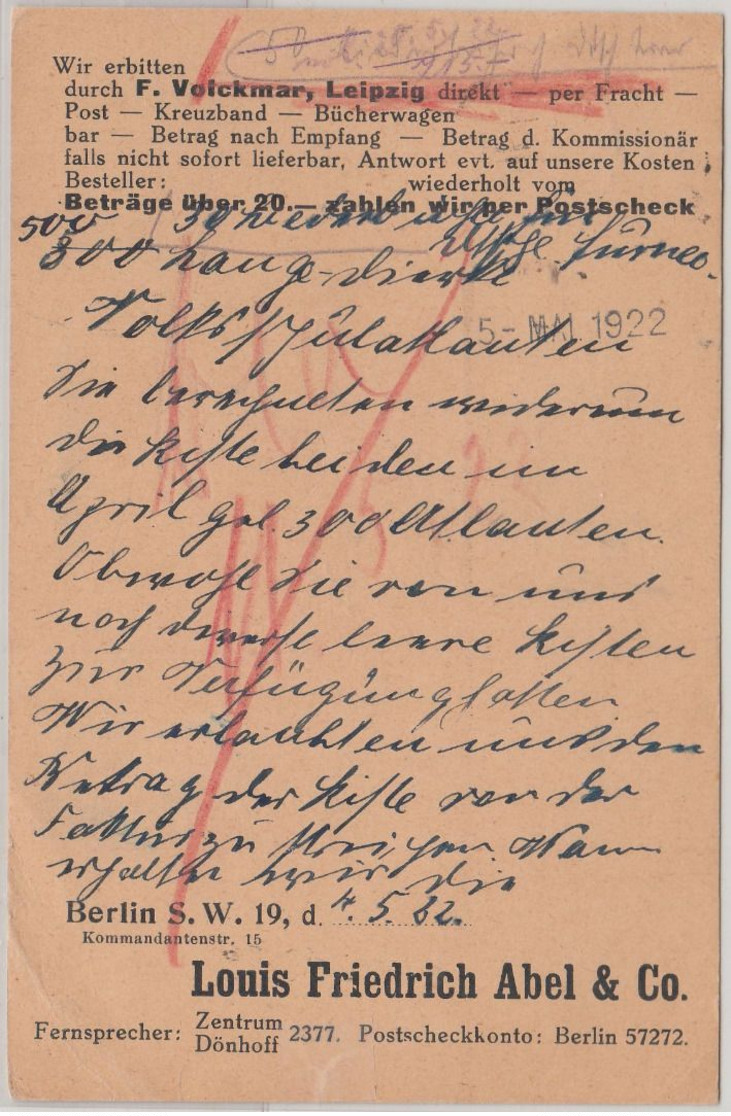 Wir erbitten
durch F. Volckmar, Leipzig direkt — per Fracht —
Post — Kreuzband — Bücherwagen
bar — Betrag nach Empfang — Betrag d. Kommissionär
falls nicht sofort lieferbar, Antwort evt. auf unsere Kosten
Besteller: wiederholt vom
Beträge über 20.— zahlen wir per Postscheck
500
300 Lange-Diercke
5- MAI 1922
Volksschulatlanten
Sie berechneten wiederum
die Kiste bei den im
April gel. 300 Atlanten.
Obwohl Sie von uns
noch diverse leere Kisten
zur Verfügung hatten
Wir erlaubten uns den
Betrag der Kiste von der
Faktur zu streichen. Wann
erhalten wir die
Berlin S. W. 19, d. 4. 5. 22.
Kommandantenstr. 15
Louis Friedrich Abel & Co.
Fernsprecher: Zentrum Dönhoff 2377. Postscheckkonto: Berlin 57272.